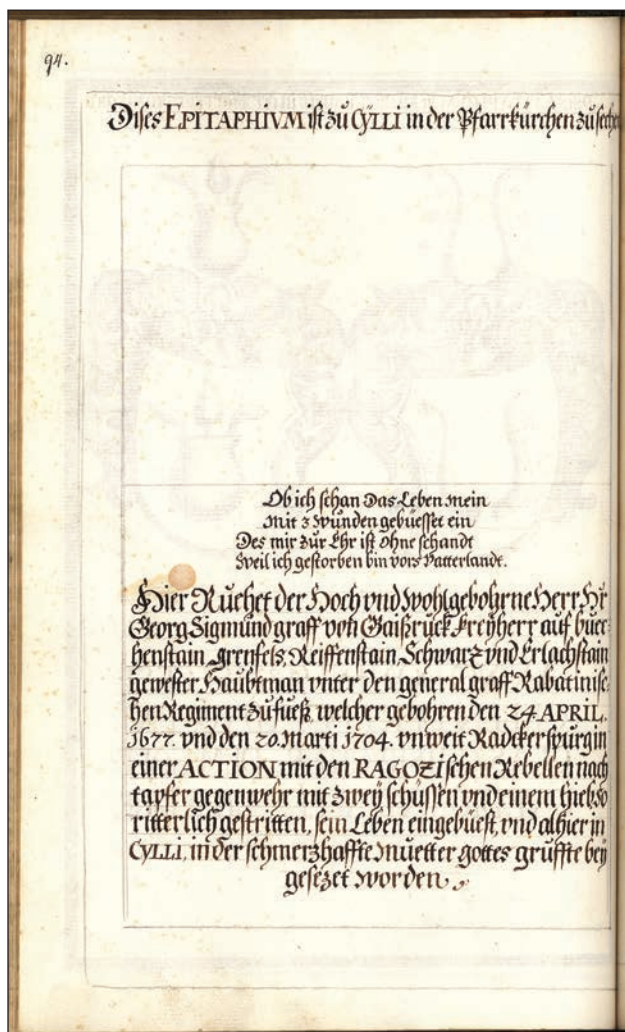 94.
Dises EPITAPHIVM ist zu CŸLLI in der Pfarrkürchen zu sechen
Ob ich schan Das Leben mein
Mit 3 wunden gebüesset ein
Des mir zur Ehr ist ohne schandt
Weil ich gestorben bin vors Vatterlandt.
Hier Ruehet der Hoch vnd wohlgebohrne Herr Hr̄
Georg Sigmund graff von Gaißruck Freÿherr auf büec
henstain grenfels, Reiffenstain, Schwarz vnd Erlachstain
gewester Haubtman vnter den general graff Rabatinisc
hen Regiment zu fueß, welcher gebohren den 24 APRIL.
1677. vnd den 20. Marti 1704. vnweit Radckerspurg in
einer ACTION mit den RAGOZischen Rebellen nach
tapfer gegenwehr mit zweÿ schüssen vnd einem hieb so
ritterlich gestritten, sein Leben eingebüest, vnd alhier in
CYLLI, in der schmerzhaffte Muetter gottes gruffte beÿ
gesezet worden